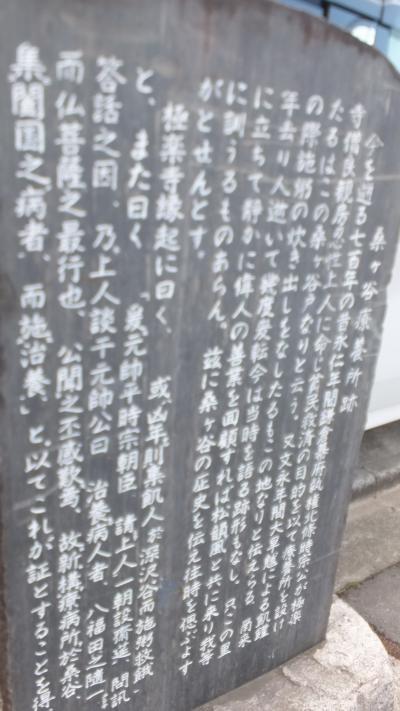 桑ヶ谷療養所跡
今を遡る七百年の昔永仁年間鎌倉幕府執権北條時宗公が極楽
寺僧良観房忍性上人に命じ貧民救済の目的を以て療養所を設け
たるはこの桑ヶ谷戸なりと云う。又文永年間大旱魃による飢饉
の際施粥の炊き出しをなしたるもこの地なりと伝えらる。爾来
年去り人逝いて幾度変転今は当時を語る跡形もなし。只この里
に立ちて静かに偉人の善業を回顧すれば松韻風と共に来り我等
に訓うるものあらん。茲に桑ヶ谷の歴史を伝え往時を偲ぶよす
がとせんとす。
極楽寺縁起に曰く、 或凶年則集飢人於深沢谷而施粥救餓
と、また曰く 「爰元帥平時宗朝臣、請上人一朝設齋筵、問訊
答話之因、乃上人談干元帥公曰 治養病人者、八福田之随一
而仏菩薩之最行也、公聞之不感歎焉、故新構療病所於桑谷、
集闔国之病者、而施治養、」と、以てこれが証とすることを得、